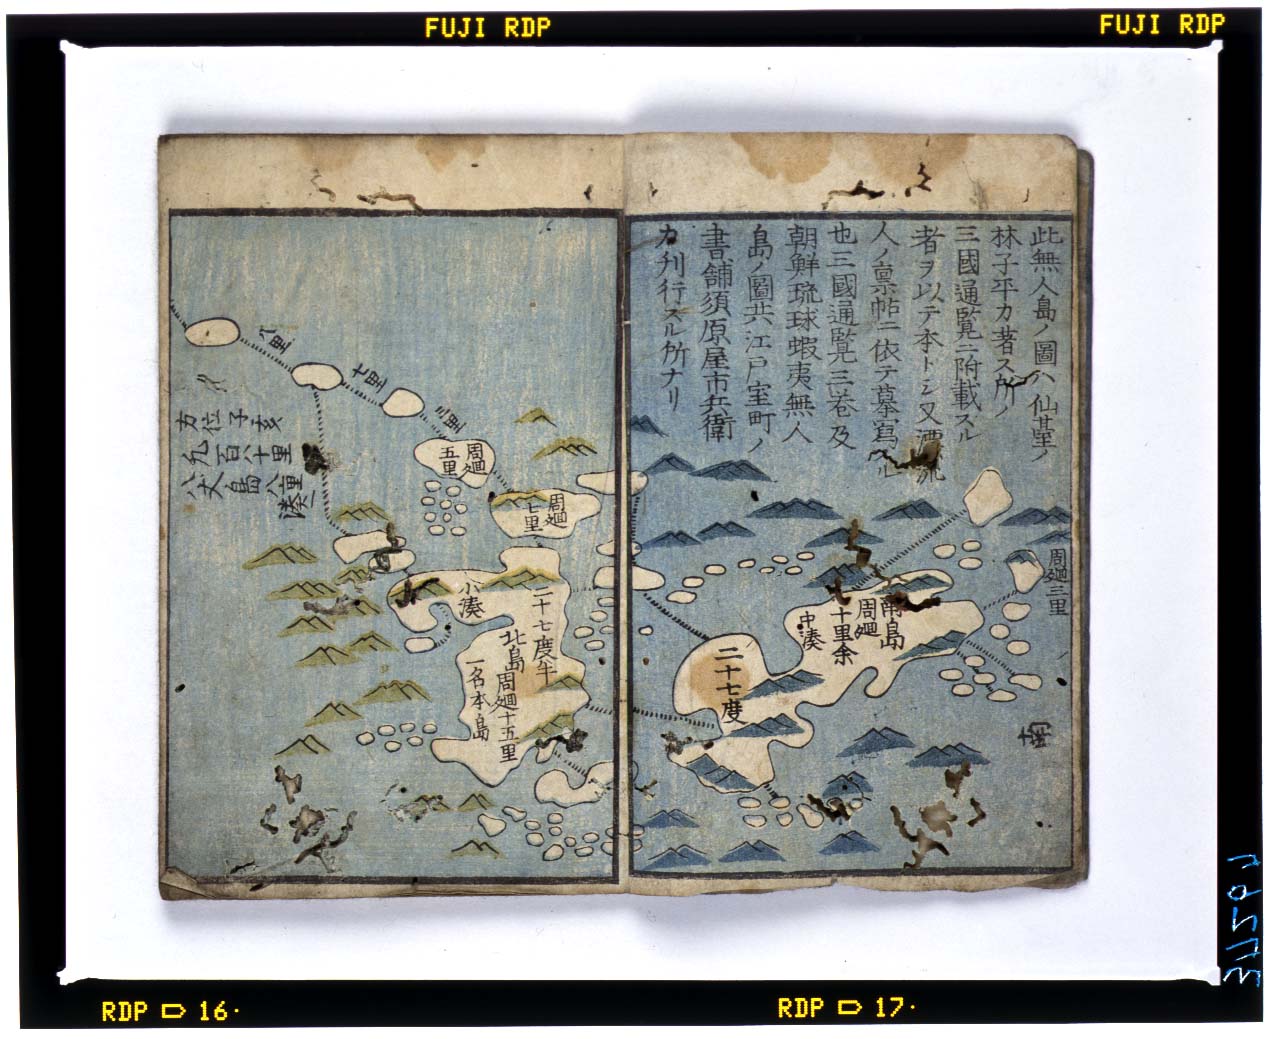 FUJI RDP
FUJI RDP
此無人島ノ圖ハ仙䑓ノ
林子平カ著ス所ノ
三國通覧ニ附載スル
者ヲ以テ本トシ又漂流
人ノ稟帖ニ依テ摹寫スル
也三國通覧三巻及
朝鮮琉球蝦夷無人
島ノ圖共江戸室町ノ
書舗須原屋市兵衛
カ刋行スル所ナリ
周廻三里
南島
周廻
十里余
中湊
二十七度
南
周廻
七里
周廻
五里
三里
七里
八里
小湊
二十七度半
北島
周廻十五里
一名本島
方位子亥
八丈島
RDP 16
RDP 17